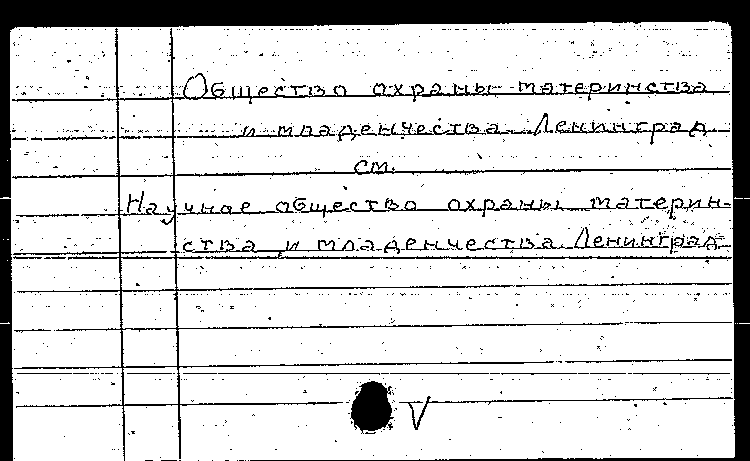 Общество охраны материнства
и младенчества. Ленинград
см.
Научное общество охраны материн-
ства и младенчества. Ленинград
V